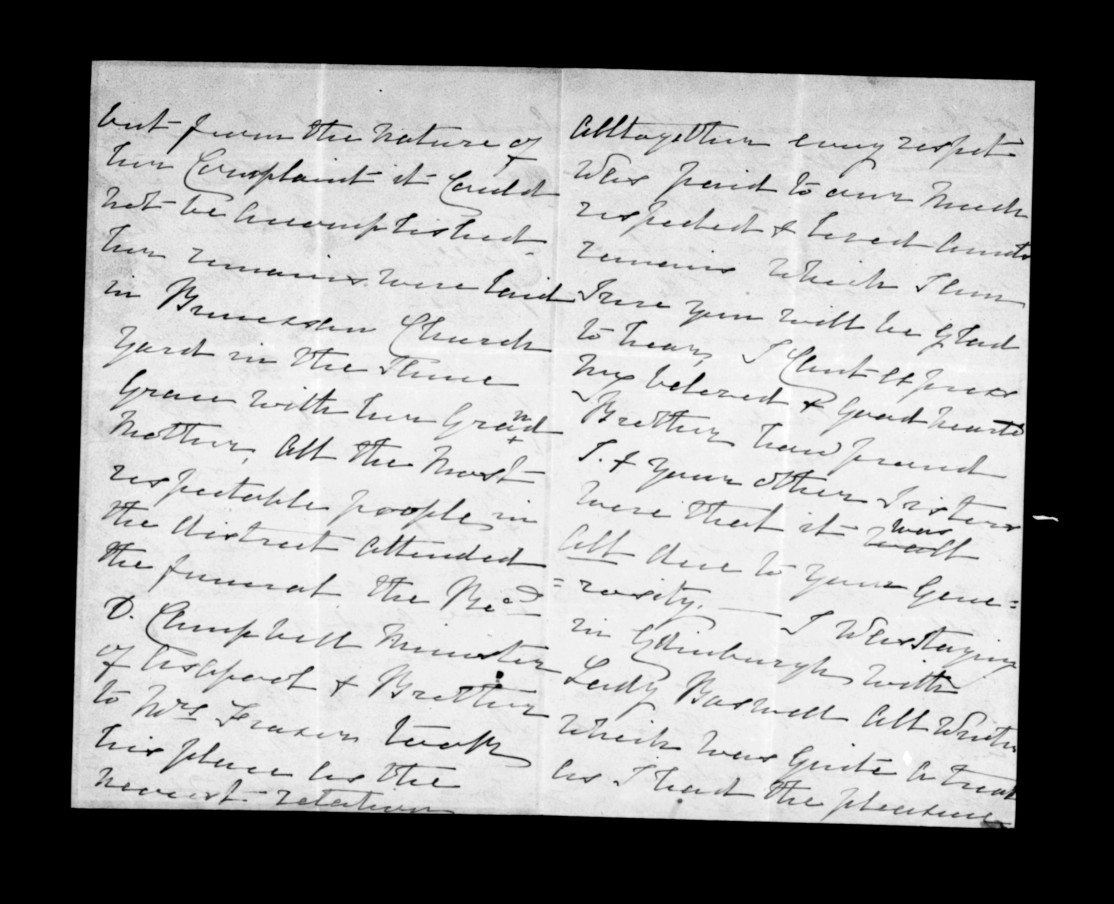 but from the nature of
her Complaint it Could
not be accomplished
her remains were laid
in Church
yard in the Same
Grave with her Grand
Mother, All the most
respectable people in
the district attended
the funeral the Red
D. Campbell Minister
of & Brother
to Mrs Fraser took
his place as the
nearest relation
Alltogether every respect
Was paid to our much
respected & loved Aunts
remains which I am
Sure you will be Glad
to hear, I Cant Express
My beloved & Good hearted
Brother how proud
I. & your other Sisters
were that it was
All due to your Gene=
=rosity. — I Was Staying
in Edinburgh with
Lady Boswell All Winter
Which was Quite a treat
as I had the pleasure